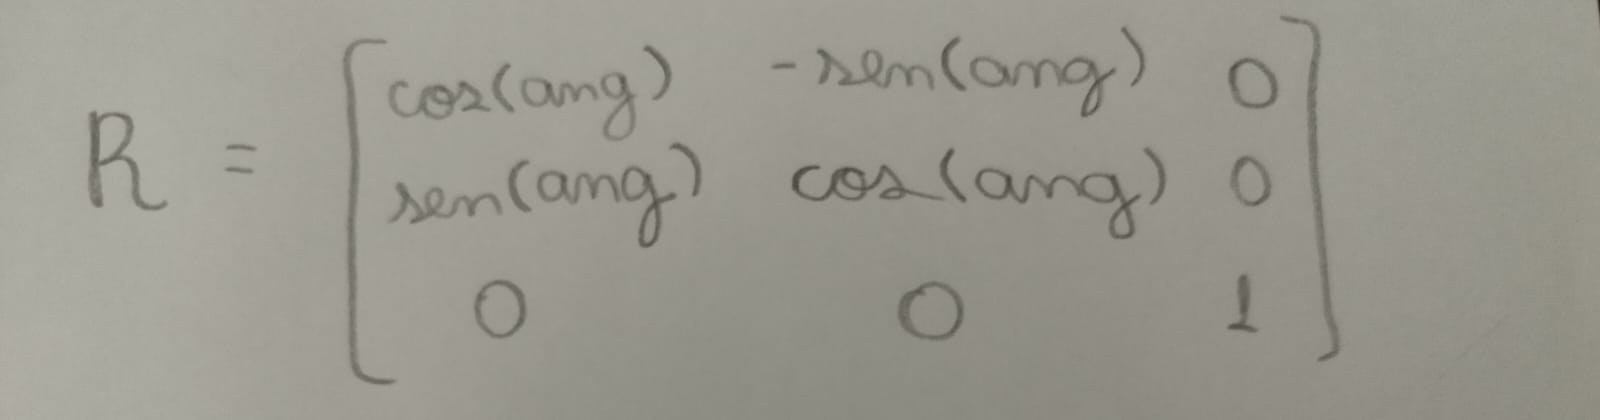 cos(ang) -sen(ang) 0
R = sen(ang) cos(ang) 0
0 0 1